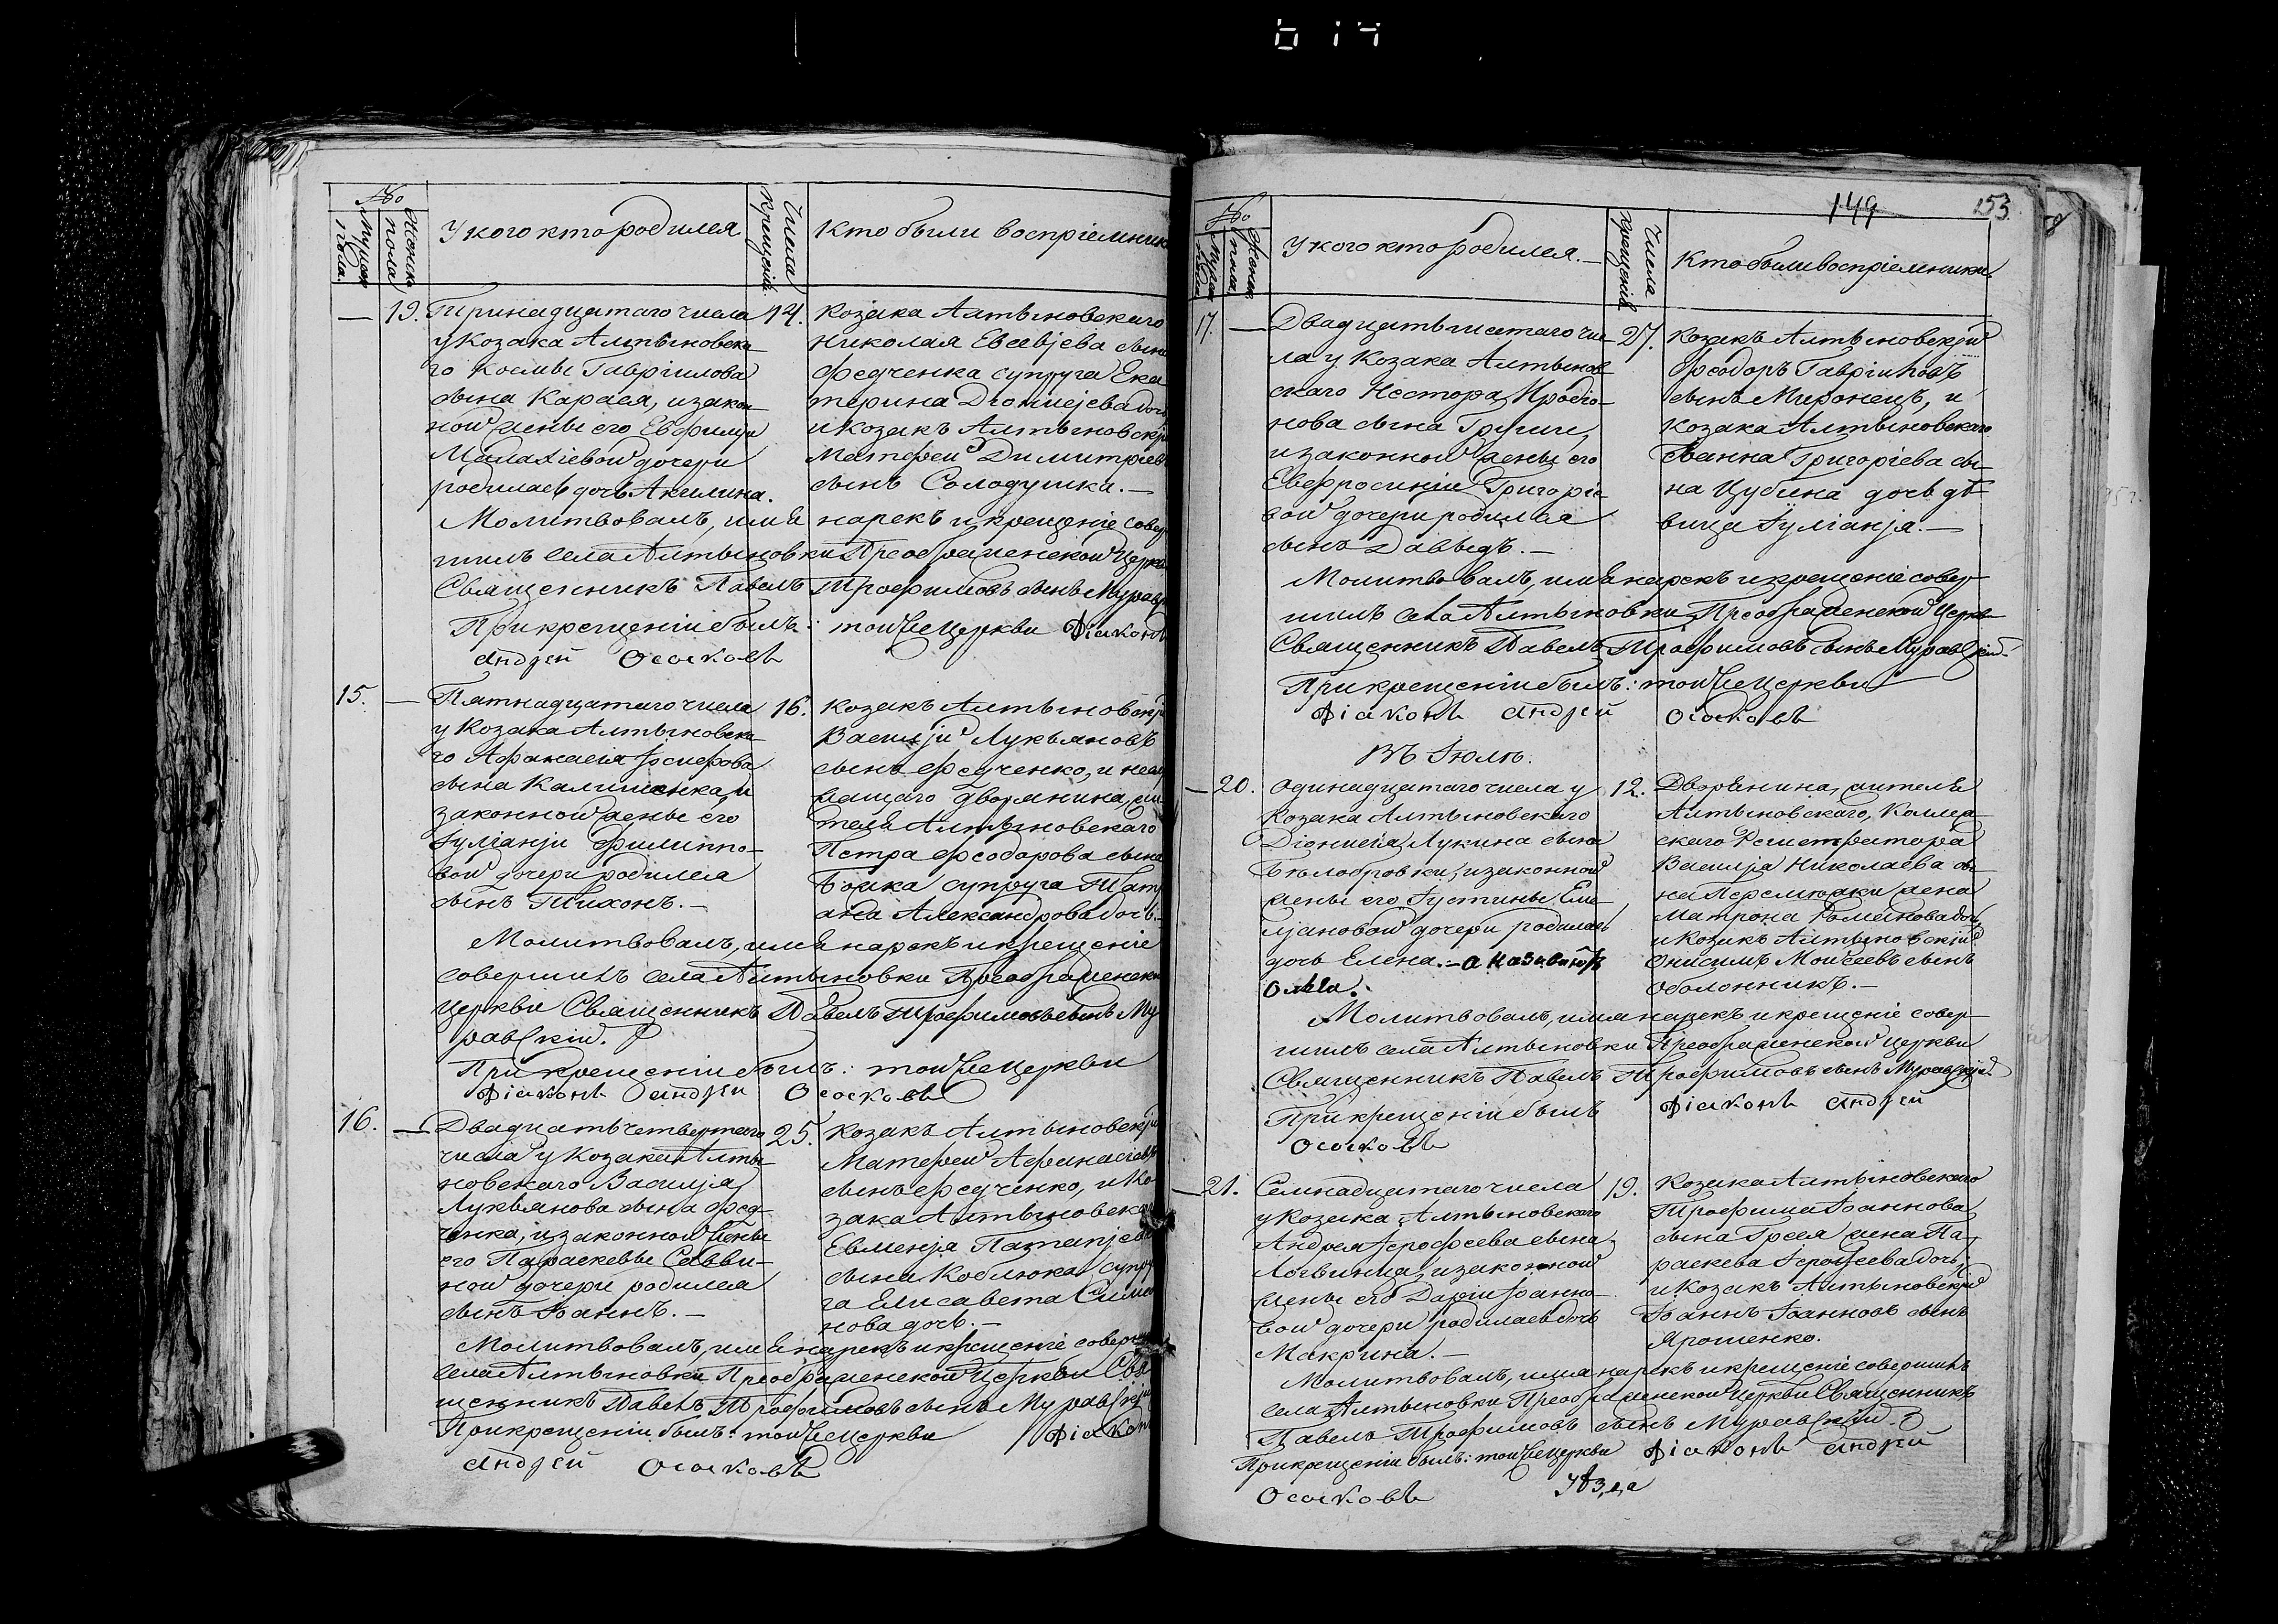 614
№
Мужеск: пола.
Женска пола
У кого кто родился
Числа Крещенія
Кто были воспріемник
19. Тринадцатаго числа
у Козака Алтыновска
го Космы Гавріилова
сына Карася, и закон
ной жены его Евфиміи
Малахіевой дочери
родилась дочь Акилина.
14. Козака Алтыновскаго
Николая Евсевіева сына
Федченка супруга Ека
терина Діонисіева дочь
и Козакъ Алтыновскій
Матфей Димитріев
сынъ Солодушка.—
Молитвовалъ, имя нарекъ и крещеніе совер
шилъ села Алтыновки Преображенской Церкв
Священникъ Павелъ Трофимовъ сынъ Мурав
При крещеніи былъ: той же Церкви Діаконъ
Андрей Ососковъ
15. — Пятнадцатаго числа
у Козака Алтыновска
го Афанасія Іосифова
сына Калишенка, и
законной жены его
Іуліаніи Филиппо-
вой дочери родился
сынъ Тихонъ.—
16. Козакъ Алтыновскі
Василій Лукьяновъ
сынъ Федченко, и
дворянина, жи
теля Алтыновскаго
Петра Феодорова сына
супруга
Александрова дочь.—
Молитвовалъ, имя нарекъ и крещеніе
совершилъ села Алтыновки Преображенско
Церкви Священникъ Павелъ Трофимовъ сынъ Му
равскій.
При крещеніи былъ: той же Церкви
Діаконъ Андрей Ососковъ
16. — Двадцать четвертаго
числа у Козака Алты
новскаго Василія
Лукьянова сына Фед-
ченка, и законной жены
его Параскевы Савви-
ной дочери родился
сынъ Іоаннъ.—
25. Козакъ Алтыновскій
Матфей Афанасіевъ
сынъ Федченко, и Ко
зака Алтыновска
Евменія Потапіева
сына Коблюка супру
га Елисавета Симо
нова дочь.—
Молитвовалъ, имя нарекъ и крещеніе соверш
села Алтыновки Преображенской Церкви Свя
щенникъ Павелъ Трофимовъ сынъ Муравскій
При крещеніи былъ: той же Церкви Діаконъ
Андрей Ососковъ
149
153
№
Мужеск пола
Женск: пола
У кого кто родился.—
Числа Крещенія
Кто были воспріемники
17. — Двадцать шестаго чис
ла у Козака Алтынов
скаго Нестора Иродіо-
нова сына
и законной жены его
Евфросиніи Григоріе
вой дочери родился
сынъ Давыдъ.—
27. Козакъ Алтыновскій
Феодоръ Гавріиловъ
сынъ Миронецъ, и
Козака Алтыновскаго
Іоанна Григоріева сы-
на Цубина дочь дѣ
вица Іуліанія.—
Молитвовалъ, имя нарекъ и крещеніе совер-
шилъ села Алтыновки Преображенской Церкв
Священникъ Павелъ Трофимовъ сынъ Муравскій.—
При крещеніи былъ: той же Церкви
Діаконъ Андрей Ососковъ
Въ Іюлѣ.
—20. Одинадцатаго числа у
Козака Алтыновскаго
Діонисія Лукина сына
Бѣлобровки, и законной
жены его Іустины Еме
ліановой дочери родилась
дочь Елена.—
12. Дворянина, жителя
Алтыновскаго, Коллеж
скаго Регистратора
Василія Николаева сы
на жена
Матрона Романова дочь
и Козакъ Алтыновскій
Онисимъ Моисеевъ сынъ
Оболонникъ.—
Молитвовалъ, имя нарекъ и крещеніе совер-
шилъ села Алтыновки Преображенской Церкви
Священникъ Павелъ Трофимовъ сынъ Муравскій.
При крещеніи былъ Діаконъ Андрей
Ососковъ
—21. Семнадцатаго числа
у Козака Алтыновскаго
Андрея Іерофеева сына
Логвина, и законной
жены его Даріи Іоанно-
вой дочери родилась дочь
Макрина.—
19. Козака Алтыновскаго
Трофима Іоаннова
сына жена Па-
раскева Іерофеева дочь,
и Козакъ Алтыновскій
Іоаннъ Іоанновъ сынъ
Ярошенко.
Молитвовалъ, имя нарекъ и крещеніе совершилъ
села Алтыновки Преображенской Церкви Священникъ
Павелъ Трофимовъ сынъ Муравскій.
При крещеніи былъ: той же Церкви Діаконъ Андрей
Ососковъ